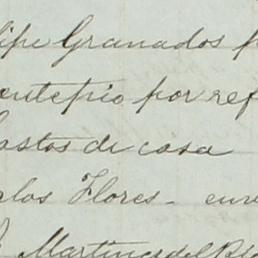 lipe Granados p
ontepio por ref
astos de casa
los Flores - en
Martinez del